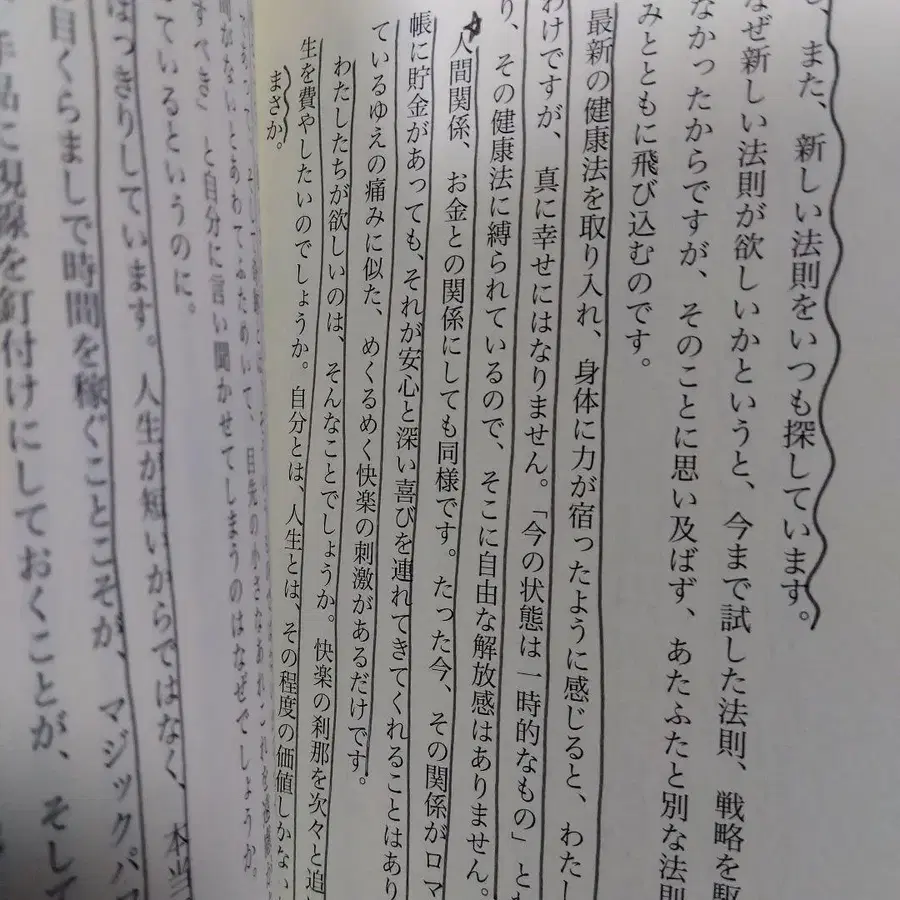 、また、新しい法則をいつも探しています。
なぜ新しい法則が欲しいかというと、今まで試した法則、戦略を駆
なかったからですが、そのことに思い及ばず、あたふたと別な法則
みとともに飛び込むのです。
最新の健康法を取り入れ、身体に力が宿ったように感じると、わたし
わけですが、真に幸せにはなりません。「今の状態は一時的なもの」と
り、その健康法に縛られているので、そこに自由な解放感はありません。
人間関係、お金との関係にしても同様です。たった今、その関係がロマ
帳に貯金があっても、それが安心と深い喜びを連れてきてくれることはあり
ているゆえの痛みに似た、めくるめく快楽の刺激があるだけです。
わたしたちが欲しいのは、そんなことでしょうか。快楽の刹那を次々と追
生を費やしたいのでしょうか。自分とは、人生とは、その程度の価値しかない
まさか。
間がないとあわてふためいて、目先の小さなあれこれを
すべき」と自分に言い聞かせてしまうのはなぜでしょうか。
ているというのに。
はっきりしています。人生が短いからではなく、本当
目くらましで時間を稼ぐことこそが、マジックパ
に視線を釘付けにしておくことが、そして